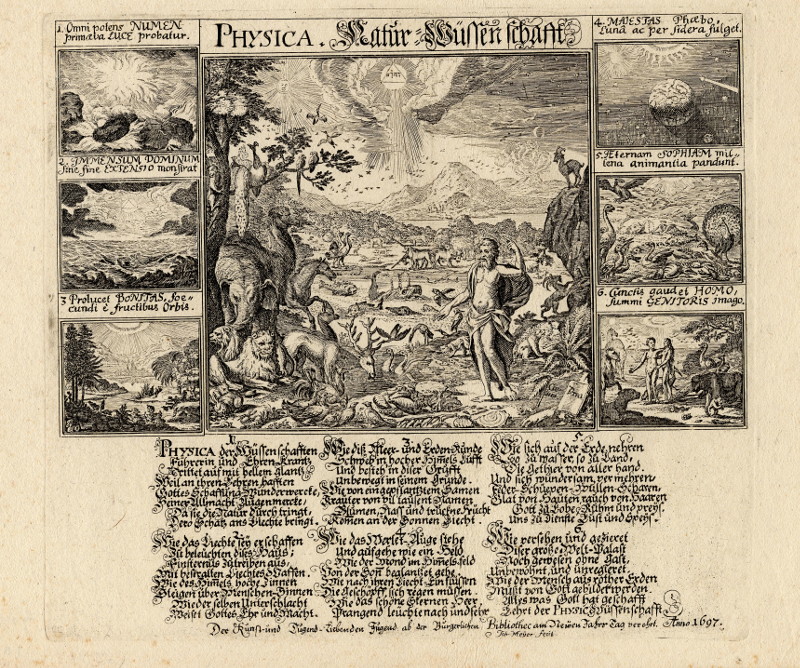 PHYSICA. Natur-Wüssenschafft
1. Omnipotens NUMEN
primæva LUCE probatur.
2. IMMENSUM DOMINUM
sine fine EXTENSIO monstrat
3 Prolucet BONITAS, foe-
cundi è fructibus Orbis.
4. MAIESTAS Phœbo,
Lunâ ac per sidera fulget.
5. Æternam SOPHIAM mil-
lena animantia pandunt.
6. Cunctis gaudet HOMO,
summi GENITORIS imago.
1
PHYSICA der Wüssenschafften
Führerin und Ehren-Krantz
Trittet auf mit hellem Glantz
Weil an ihren Lehren hafften
Gottes Schaffung Wunderwercke,
Seiner Allmacht Zeugenmercke,
Da sie die Natur durchtringt,
Dero Schätz ans Liechte bringt.
Wie das Liechte sey erschaffen
Zu beleuchten dises Haus;
Finsternus zutreiben aus,
Mit bestralten Liechtes Waffen.
Wie des Himmels hoche Zinnen
Steigen über Menschen-Sinnen
Wie der selben Unterschlacht
Weiset Gottes Ehr und Macht.
3.
Wie diß Meer- und Erden-Runde
Schweb in hocher Himels Lufft
Und besteh in diser Grufft
Unbewegt in seinem Grunde.
Wie von eingepflantztem Samen
Kräuter von vil tausent Namen
Blumen, Nuss und truckne Frücht
Komen an der Sonnen Liecht.
4.
Wie das Werlet-Auge stehe
Und aufgehe wie ein Held
Wie der Mond im Himels-feld
Von der Son beglantzet gehe.
Wie nach ihren Liecht-Einflüssen
Die Geschöpff sich regen müssen.
Wie das schöne Sternen-Heer
Prangend leuchte nach und sehr
5.
Wie sich auf der Erde nehren
So zu Wasser, so zu Land,
Die Gethier von aller hand.
Und sich wundersam vermehren,
Feder-Schuppen-Wullen-Scharen,
Glatt von Häuten rauch von Haaren
Gott zu Lobe, Ruhm und Preyß.
Uns zu Dienste Lust und Speyß.
6.
Wie versehen und gezieret
Diser grosse Welt-Palast
Noch gewesen ohne Gast,
Unbewohnt und unregieret
Wie der Mensch aus rother Erden
Mußt von Gott gebildet werden.
Alles was Gott hat geschafft
Lehrt der PHYSIC Wüssenschafft.
Der Kunst- und Tugend-Liebenden Jugend ab der Bürgerlichen Bibliothec am Neüen Jahrs Tag verehrt. Anno 1697.
Joh. Meyer fecit.